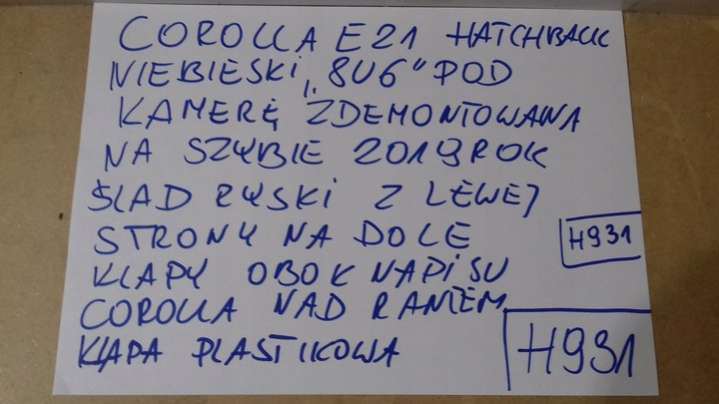 COROLLA E21 HATCHBACK
NIEBIESKI „8U6" POD
KAMERĘ ZDEMONTOWANA
NA SZYBIE 2019 ROK
ŚLAD RYSKI Z LEWEJ
STRONY NA DOLE
H931
KLAPY OBOK NAPISU
COROLLA NAD RANTEM
KLAPA PLASTIKOWA
H931